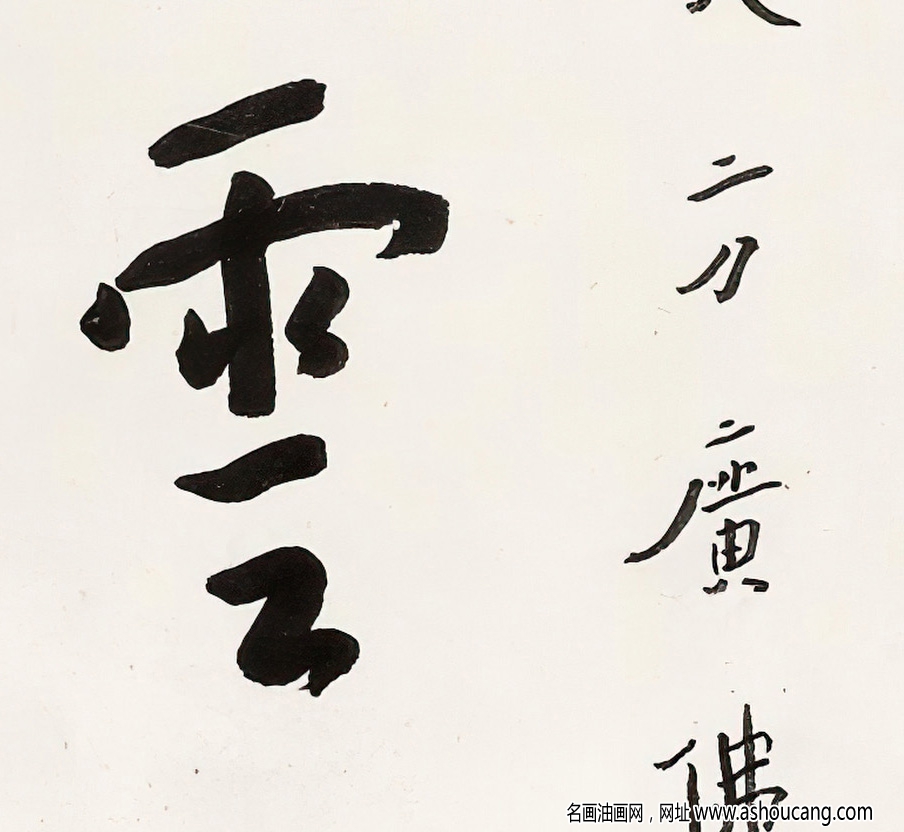 方廣佛
雲
名画油画网，网址 www.ashoucang.com